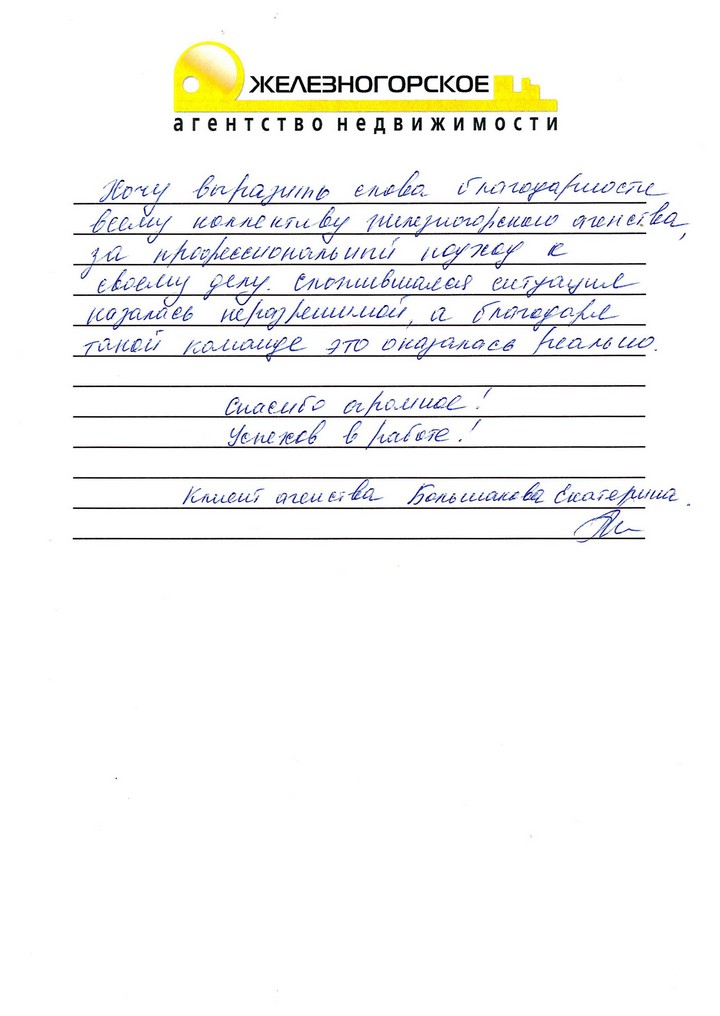 ЖЕЛЕЗНОГОРСКОЕ
агентство недвижимости
Хочу выразить слова благодарности
всему коллективу Железногорского агенства,
за профессиональный подход к
своему делу. Сложившаяся ситуация
казалась неразрешимой, а благодаря
такой команде это оказалась реально.
Спасибо огромное!
Успехов в работе!
Клиент агенства Большакова Екатерина.